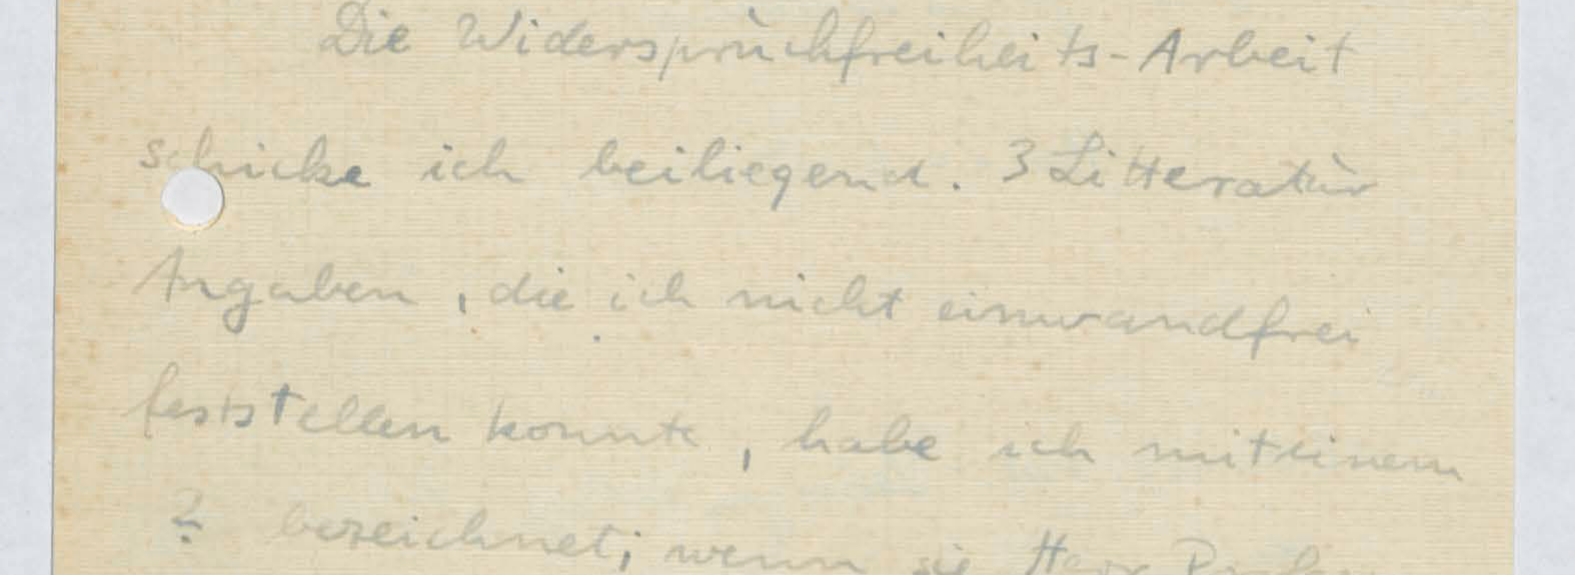 Die Widerspruchfreiheits-Arbeit
schicke ich beiliegend. 3 Litteratur
Angaben, die ich nicht einwandfrei
feststellen konnte, habe ich mit einem
? bezeichnet; wenn sie Herr